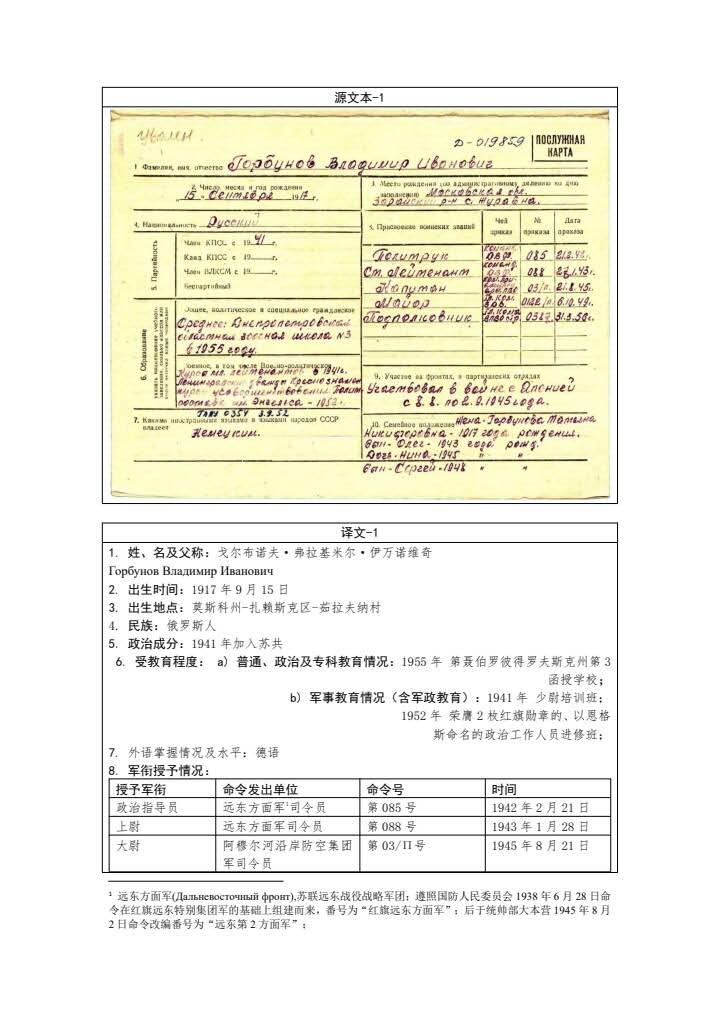 源文本-1
Увлен.
Д-019859
ПОСЛУЖНАЯ
КАРТА
1 Фамилия, имя, отчество Горбунов Владимир Иванович
2. Число, месяц и год рождения
15 Сентября 1917 г.
3. Место рождения (по административному делению ко дню
заполнения) Московская обл.
Зарайский р-н с. Журавна.
4. Национальность Русский
5. Партийность
Член КПСС с 1941 г.
Канд КПСС с 19 г.
Член ВЛКСМ с 19 г.
беспартийный
6. Образование
Общее, политическое и специальное гражданское
Среднее: Днепропетровская
областная заочная школа №3
в 1955 году.
Военное, в том числе Военно-политическое
Курсы мл. лейтенантов в 1941 г.
Ленинградские дважды Краснознамен
курсы усовершенствования Полит
состава им. Энгельса - 1952 г.
7. Какими иностранными языками и языками народов СССР
владеет
Немецким.
8. Присвоение воинских званий
Чей
приказ
№
приказа
Дата
приказа
Политрук 085 21.2.42г.
Ст. Лейтенант 088
Капитан 03/п. 21.8.45г.
Майор 6.10.49г.
Подполковник
9. Участие на фронтах, в партизанских отрядах
Участвовал в войне с Японией
с 8.8. по 2.9.1945 года.
10. Семейное положение Жена-Горбунова Татьяна
Никифоровна - 1917 года рождения.
Сын - Олег - 1943 года рожд.
Дочь - Нина - 1945 " "
Сын - Сергей - 1948 " "
译文-1
1. 姓、名及父称：戈尔布诺夫·弗拉基米尔·伊万诺维奇
Горбунов Владимир Иванович
2. 出生时间：1917 年 9 月 15 日
3. 出生地点：莫斯科州-扎赖斯克区-茹拉夫纳村
4. 民族：俄罗斯人
5. 政治成分：1941 年加入苏共
6. 受教育程度： a) 普通、政治及专科教育情况：1955 年 第聂伯罗彼得罗夫斯克州第 3
函授学校；
b) 军事教育情况（含军政教育）：1941 年 少尉培训班；
1952 年 荣膺 2 枚红旗勋章的、以恩格
斯命名的政治工作人员进修班；
7. 外语掌握情况及水平：德语
8. 军衔授予情况：
授予军衔 命令发出单位 命令号 时间
政治指导员 远东方面军¹司令员 第 085 号 1942 年 2 月 21 日
上尉 远东方面军司令员 第 088 号 1943 年 1 月 28 日
大尉 阿穆尔河沿岸防空集团 第 03/П号 1945 年 8 月 21 日
军司令员
¹ 远东方面军(Дальневосточный фронт),苏联远东战役战略军团；遵照国防人民委员会 1938 年 6 月 28 日命
令在红旗远东特别集团军的基础上组建而来，番号为“红旗远东方面军”；后于统帅部大本营 1945 年 8 月
2 日命令改编番号为“远东第 2 方面军”；